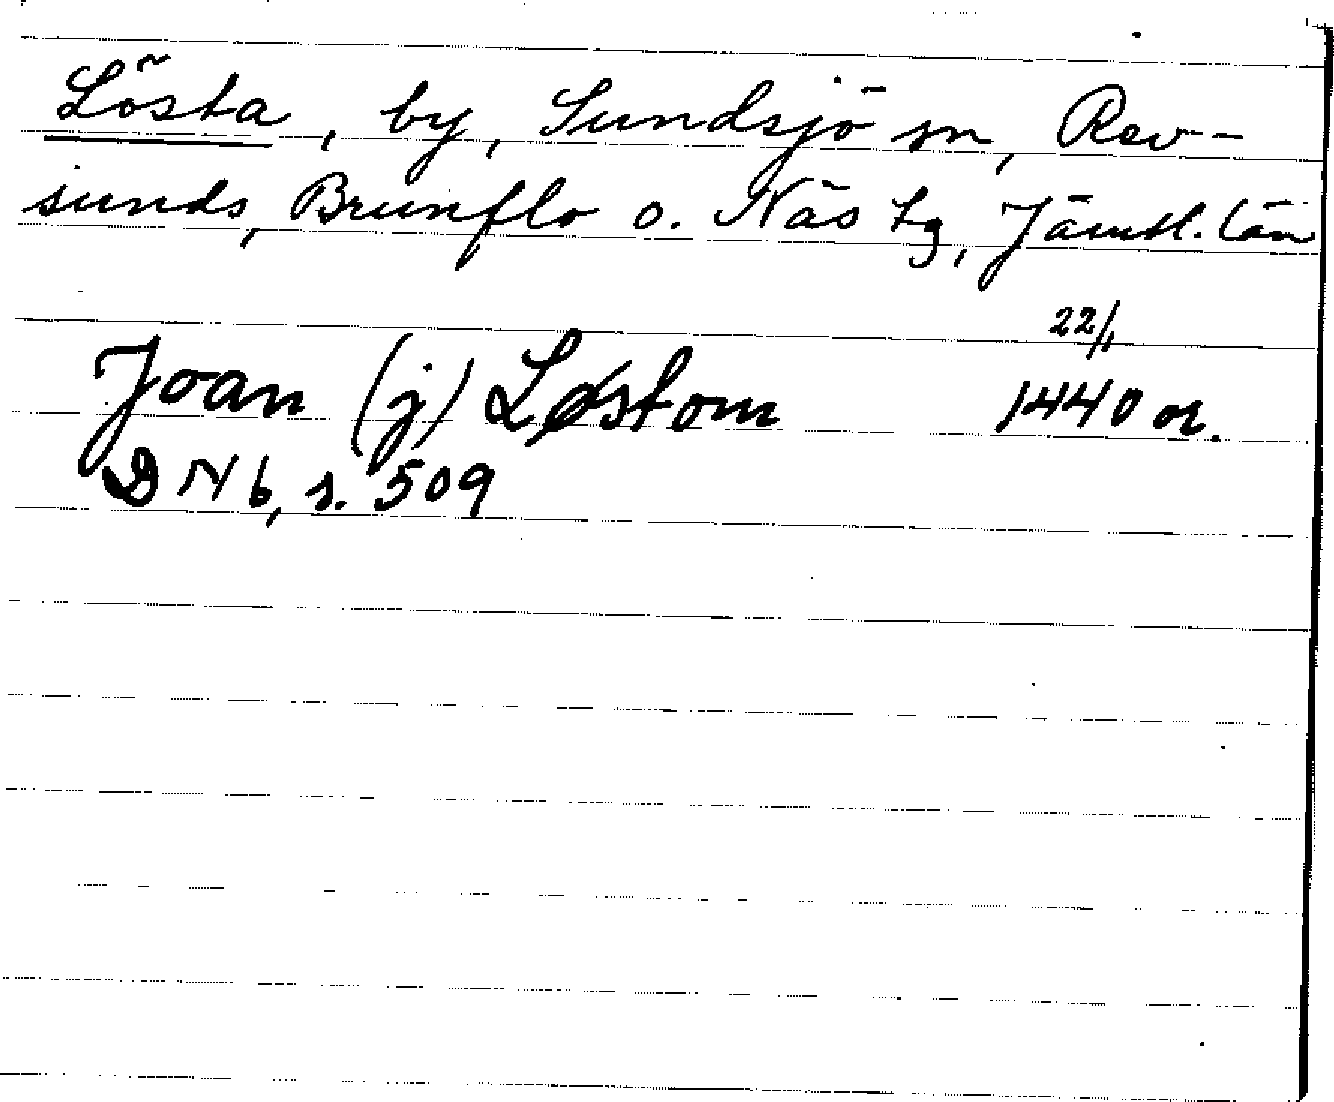 Lösta, by, Sundsjö sn, Rev-
sunds, Brunflo o. Näs tg, Jämtl. län
22/1
Joan (j) Løstom 1440 or.
DN 6, s. 509